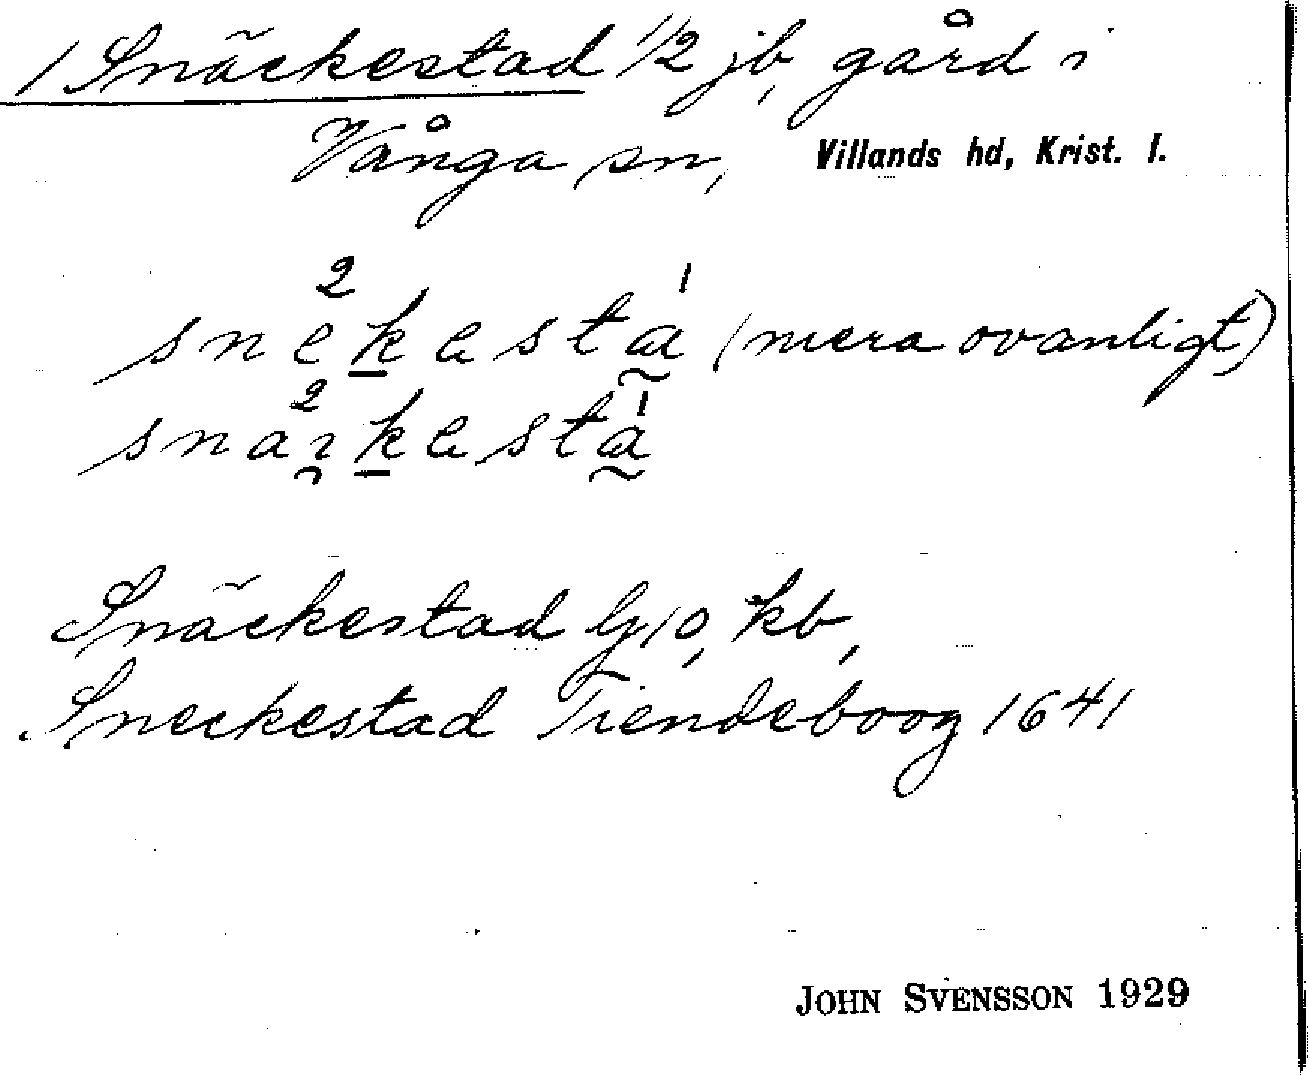 1 Snäckestad 1/2 jb, gård i
Vånga sn, Villands hd, Krist. l.
snekestá (mera ovanligt)
snaıkestá
Snäckestad G 10, kb,
Sneckestad Tiendeboog 1641
JOHN SVENSSON 1929